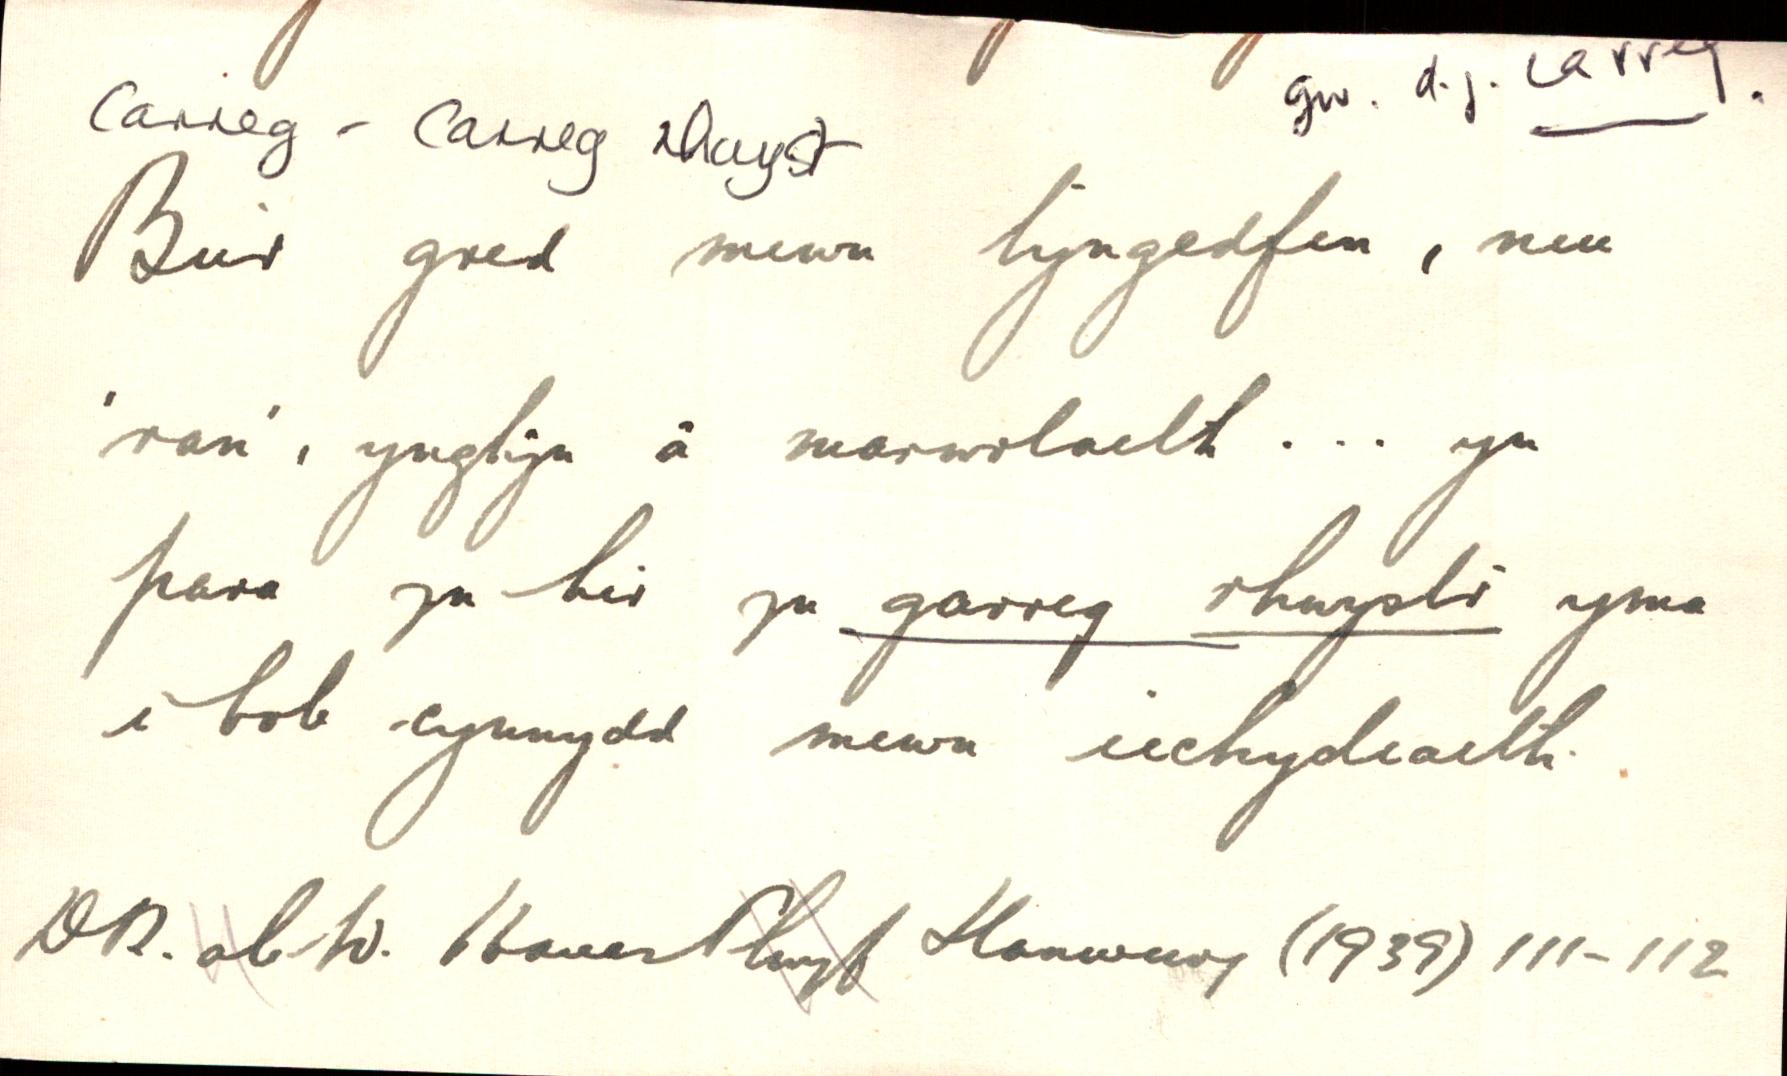 gw. d.j. Carreg.
Carreg - Carreg rhwyst
Bu'r gred mewn tynged fen, neu
'ran', ynglŷn â marwolaeth ... yn
para yn hir yn garreg rhwystr yma
i bob cynnydd mewn iechydiaeth.
DR. ab W. Hanes Plwyf Llanwnog (1939) 111-112